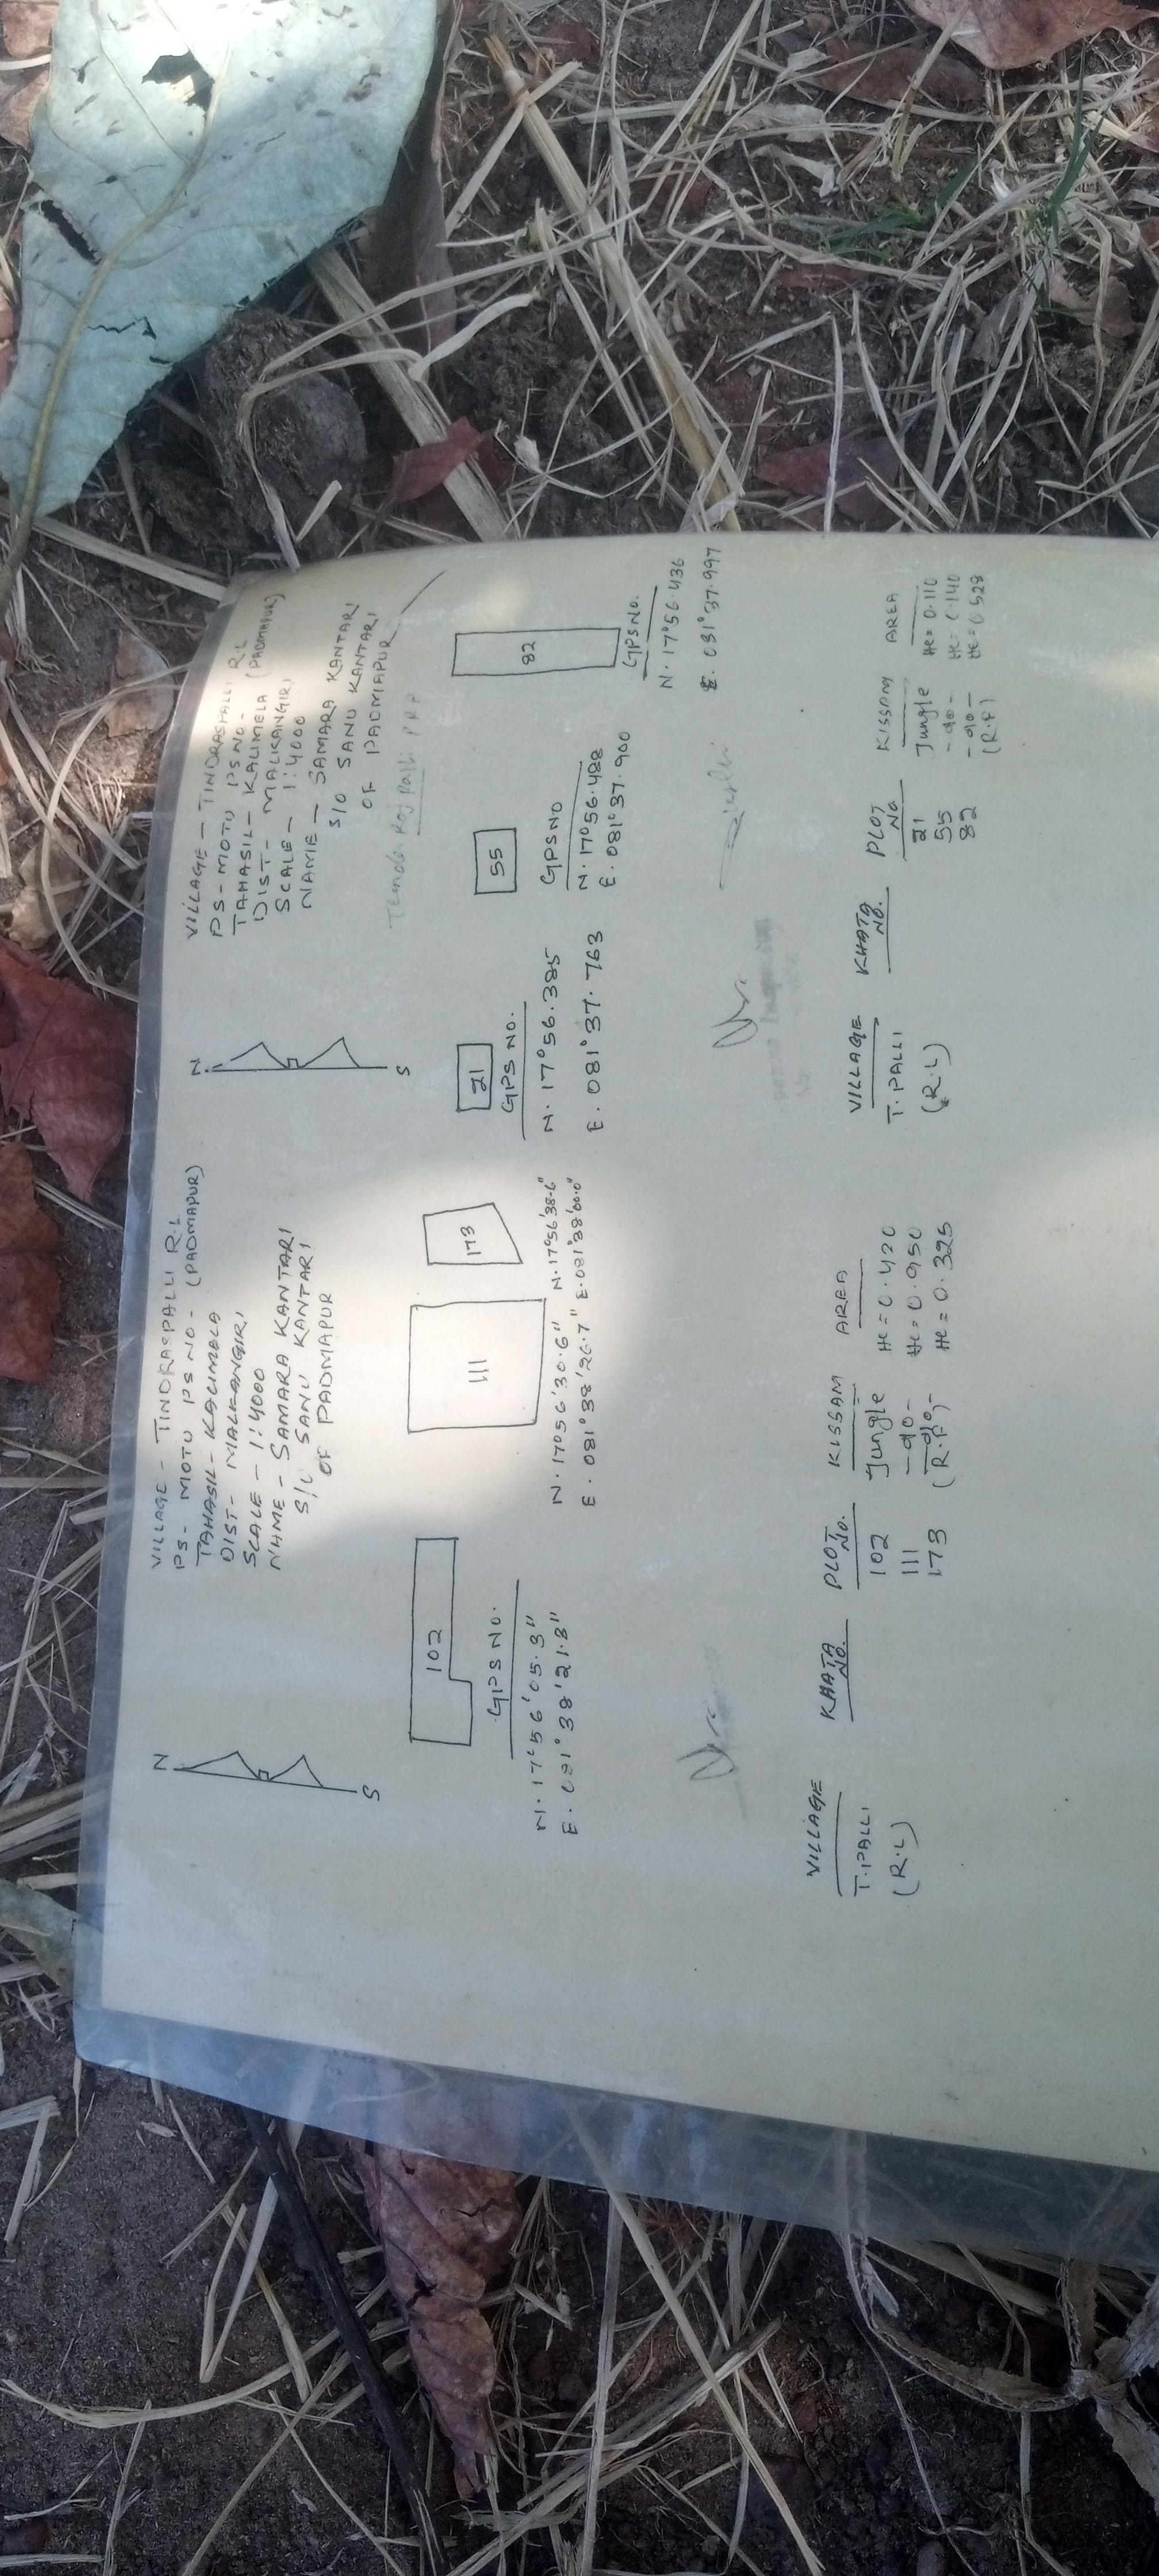 VILLAGE - TINDRASPALLI R.L
PS - MOTU PS NO - (PADMAPUR)
TAHASIL - KALIMELA
DIST - MALKANGIRI
SCALE - 1:4000
NAME - SAMARA KANTARI
S/O SANU KANTARI
OF PADMAPUR
N
S
102
111
173
GPS NO.
N. 17°56'05.3"
E. 081°38'21.3"
N. 17°56'30.6"
E. 081°38'26.7"
N. 17°56'38.6"
E. 081°38'00.0"
VILLAGE KHATA NO. PLOT NO. KISSAM AREA
T. PALLI 102 Jungle He = 0.420
(R.L) 111 - do - He = 0.950
173 - do - He = 0.325
(R.F)
VILLAGE - TINDRASPALLI R.L
PS - MOTU PS NO -
TAHASIL - KALIMELA (PADMAPUR)
DIST - MALKANGIRI
SCALE - 1:4000
NAME - SAMARA KANTARI
S/O SANU KANTARI
OF PADMAPUR
N
S
21
55
82
GPS NO.
N. 17°56.385
E. 081°37.763
GPS NO
N. 17°56.488
E. 081°37.900
GPS NO.
N. 17°56.436
E. 081°37.997
VILLAGE KHATA NO. PLOT NO KISSAM AREA
T. PALLI 21 Jungle He = 0.110
(R.L) 55 - do - He = 0.140
82 - do - He = 0.528
(R.F)